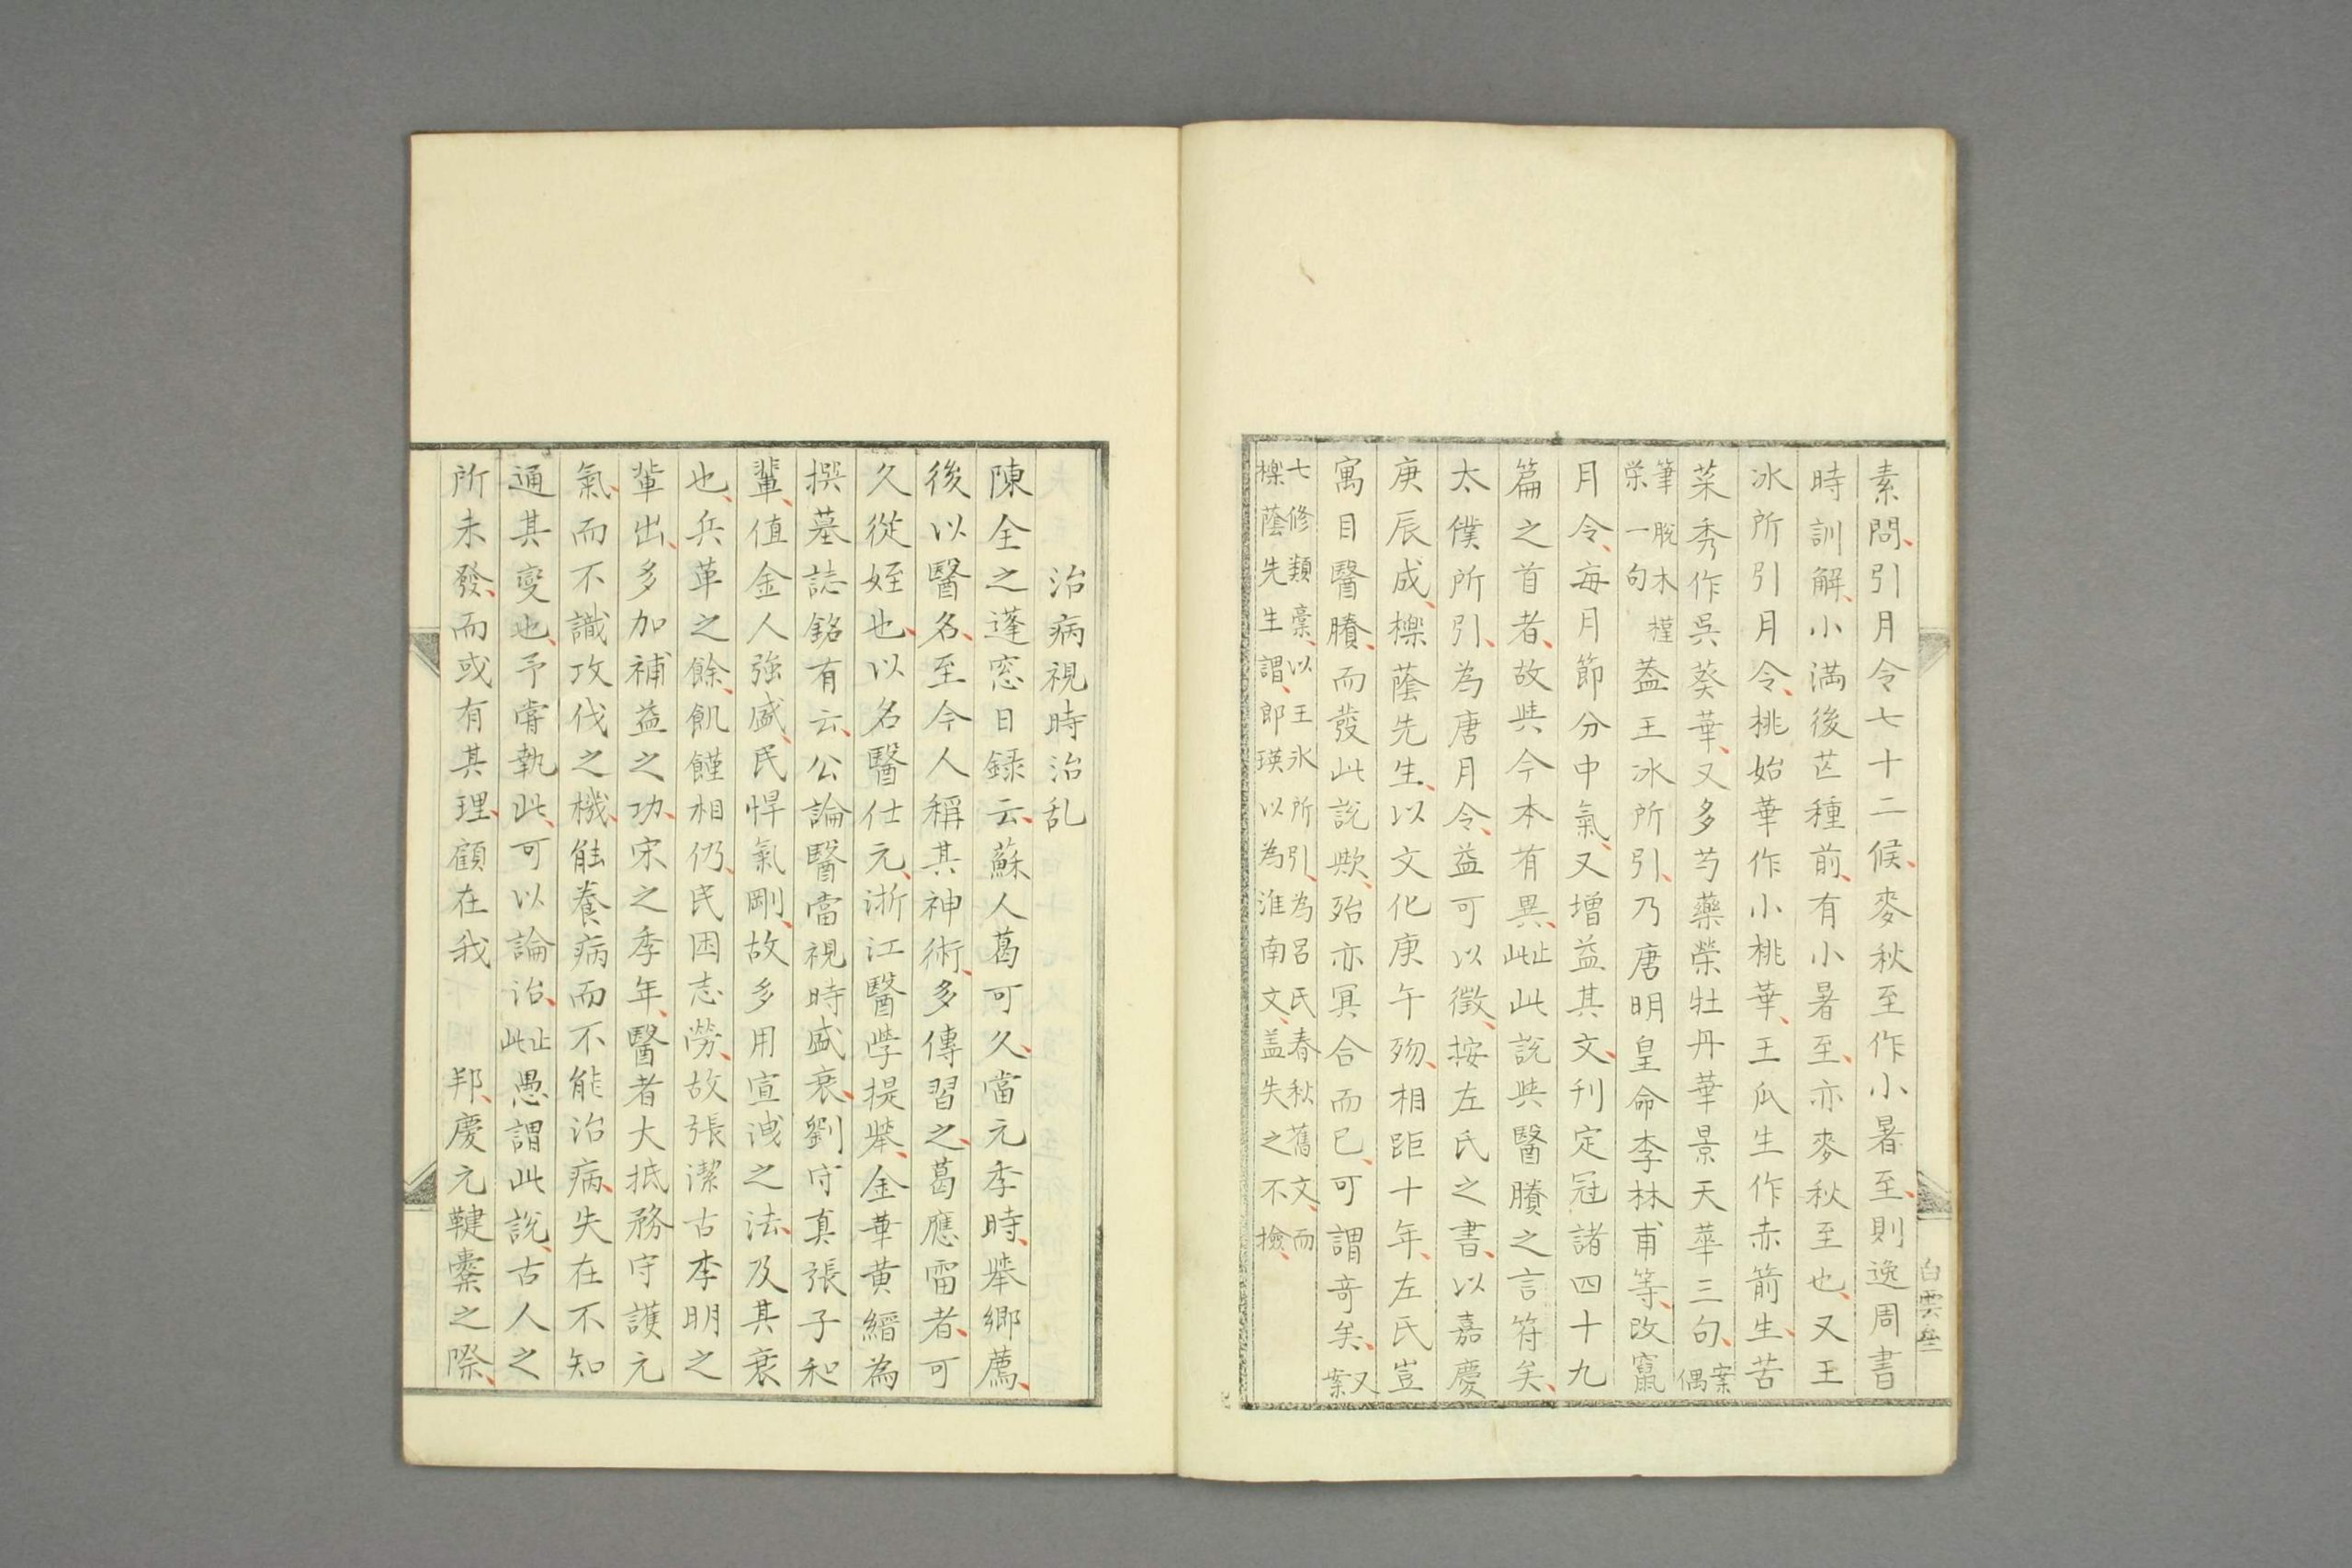 素問、引月令七十二候、麥秋至作小暑至、則逸周書
時訓解、小満後芒種前、有小暑至、亦麥秋至也、又王
冰所引月令、桃始華作小桃華、王瓜生作赤箭生、苦
菜秀作呉葵華、又多芍藥榮牡丹華景天華三句、案偶
筆脱木槿栄一句 葢王冰所引、乃唐明皇命李林甫等、改竄
月令、毎月節分中氣、又増益其文、刊定冠諸四十九
篇之首者、故與今本有異、止此 此説與醫賸之言符矣、
太僕所引、為唐月令、益可以徴、按左氏之書、以嘉慶
庚辰成、櫟蔭先生、以文化庚午歿、相距十年、左氏豈
寓目醫賸、而發此説歟、殆亦冥合而已、可謂竒矣、又案
七修類藁、以王氷所引、為呂氏春秋舊文、而
櫟蔭先生謂、郎瑛以為淮南文、盖失之不撿、
白雲
治病視時治乱
陳全之蓬窓日録云、蘇人葛可久、當元季時、擧郷薦、
後以醫名、至今人稱其神術、多傳習之、葛應雷者、可
久從姪也、以名醫仕元、浙江醫學提擧、金華黄縉為
撰墓誌銘有云、公論醫當視時盛衰、劉守真張子和
輩、值金人強盛、民悍氣剛、故多用宣洩之法、及其衰
也、兵革之餘、飢饉相仍、民困志勞、故張潔古李明之
輩出、多加補益之功、宋之季年、醫者大抵務守護元
氣、而不識攻伐之機、能養病而不能治病、失在不知
通其變也、予嘗執此、可以論治、止此 愚謂此説、古人之
所未發、而或有其理、顧在我　邦、慶元鞬櫜之際、